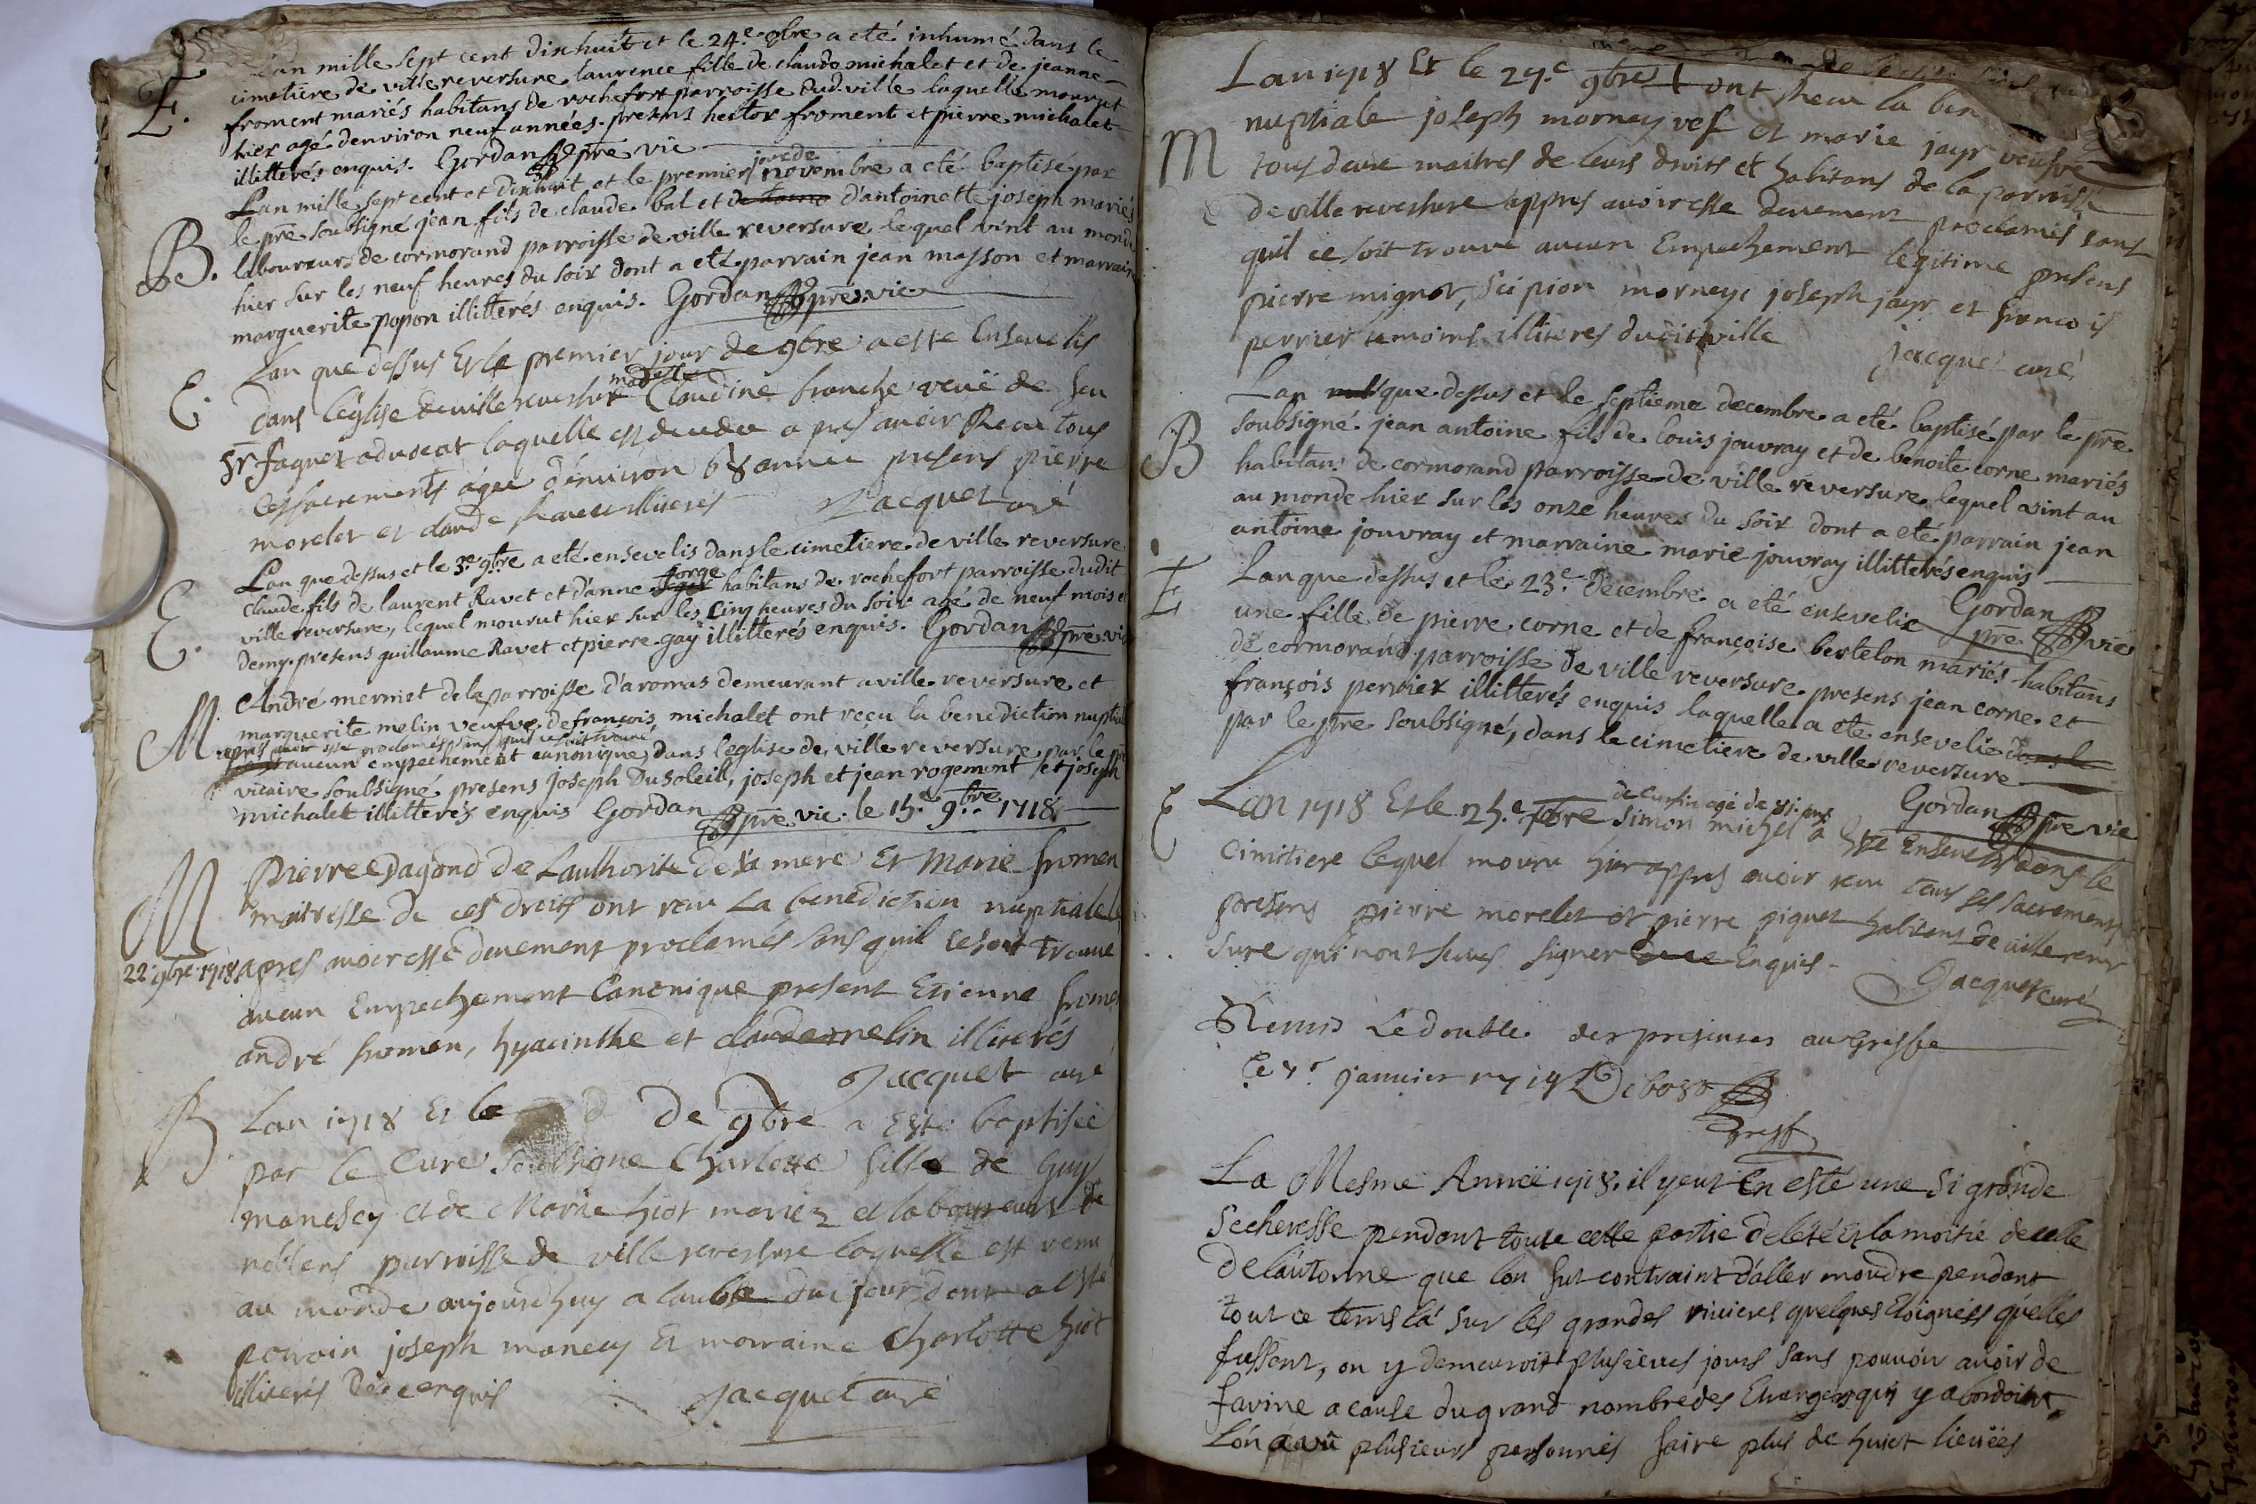 Lan mille sept cent dixhuit et le 24.e 8bre a eté inhumé dans le
cimetiere de ville reversure laurence fille de claude michalet et de jeanne
E.
froment mariés habitans de rochefort parroisse dud. ville laquelle mourut
hier agé denviron neuf années. presens hector froment et pierre michalet
illitterés enquis. Gordan pre vic
Lan mille sept cent et dixhuit et le premier jour de novembre a eté baptisé par
le pre soubsigné jean fils de claude bal et d'antoinette joseph mariés
B.
laboureurs de cormorand parroisse de ville reversure lequel vint au monde
hier sur les neuf heures du soir dont a eté parrain jean masson et marraine
marguerite popon illitterés enquis. Gordan pre. vic
Lan que dessus Et le premier jour de 9bre a este Ensevelis
E.
dans leglise de ville reversure Claudine franche veuë de feu
sr. Jaquet advocat laquelle est decedee apres avoir Receu tous
ces sacrements agée d'environ 68 année presens pierre
morelet et claude illiterés Jacquet curé
Lan que dessus et le 3.e 9bre a eté ensevelis dans le cimetiere de ville reversure
claude fils de laurent Ravet et d'anne forge habitans de rochefort parroisse dudit
ville reversure, lequel mourut hier sur les cinq heures du soir agé de neuf mois et
E.
demy. presens guillaume Ravet et pierre gay illitterés enquis. Gordan pre vic
André mermet de la parroisse d'aromas demeurant a ville reversure et
M.
marguerite melin veufve de françois michalet ont reçu la benediction nuptiale
apres avoir esté proclamés sans quil ce soit trouvé
aucun empechement canonique, dans l'eglise de ville reversure par le pre
vicaire soubsigné presens Joseph Dusoleill, joseph et jean rogemont et joseph
michalet illitterés enquis Gordan pre vic. le 15.e 9bre 1718
Pierre Dagond de Lauthorite de sa mere Et Marie fromen
M
maitresse de ces droits ont receu La benediction nuptiale
22 9bre 1718
apres avoir esté deuement proclamés sans quil ce soit trouve
aucun Empechement Canonique present Etienne fromen
andré fromen, hyacinthe et claude melin illiterés
Jacquet curé
B
Lan 1718 Et le de 9bre a Esté baptisée
par le Curé Soubsigne Charlotte fille de Guy
manesey et de Marie hiot mariez et laboureurs de
noblens parroisse de ville reversure laquelle est venu
au monde aujourdhuy a laube du jour dont a esté
parrain joseph manecy Et marraine Charlotte hiot
illiterés de ce enquis Jacquet curé
Lan 1718 Et le 29.e 9bre ont receu la ben
nuptiale joseph morney vef et marie jayr veufve
M
tous deux maitres de leurs droits et habitans de la parroisse
de ville reversure appres avoir esse deuement proclamés sans
quil ce soit trouvé aucun Empechement legitime presens
pierre mignot, scipion morney, joseph jayr et francois
perrier temoins illiteres dudit ville
Jacquet curé
Lan que dessus et le septieme decembre a eté baptisé par le pre
B
soubsigné jean antoine fils de louis jouvray et de benoite corne mariés
habitans de cormorand parroisse de ville reversure lequel vint au
au monde hier sur les onze heures du soir dont a eté parrain jean
antoine jouvray et marraine marie jouvray illitterés enquis
Gordan pre vic
E
Lan que dessus et le 23.e Decembre a eté ensevelie
une fille de pierre corne et de françoise bertelon mariés habitans
de cormorand parroisse de ville reversure presens jean corne et
françois perrier illitterés enquis laquelle a eté ensevelie dans le
par le pre soubsigné, dans le cimetiere de ville reversure
Gordan pre vic
E
Lan 1718 Et le 25.e Simon michel a Esté Enseveli dans le
cimitiere lequel mouru hier appres avoir receu tous ses sacrements
presens pierre morelet et pierre piquet habitans de ville rever
sure qui n'ont sceus signer Enquis
Jacquet curé
Remis Le double des presentes au Greffe
Le janvier 1719 Debost
Greff
La Mesme Anneë 1718. il y eut En esté une si grande
secheresse pendant toute cette partie de l'eté Et la moitié de celle
de lautonne que lon fut contraint d'aller moudre pendant
tout ce tems lá sur les grandes rivieres quelques Eloigneés qu'elles
fussent, on y demeuroit plusieurs jours sans pouvoir avoir de
farine a cause du grand nombre des qui y abordoint,
L'on a vû plusieurs personnes faire plus de huict lieuës